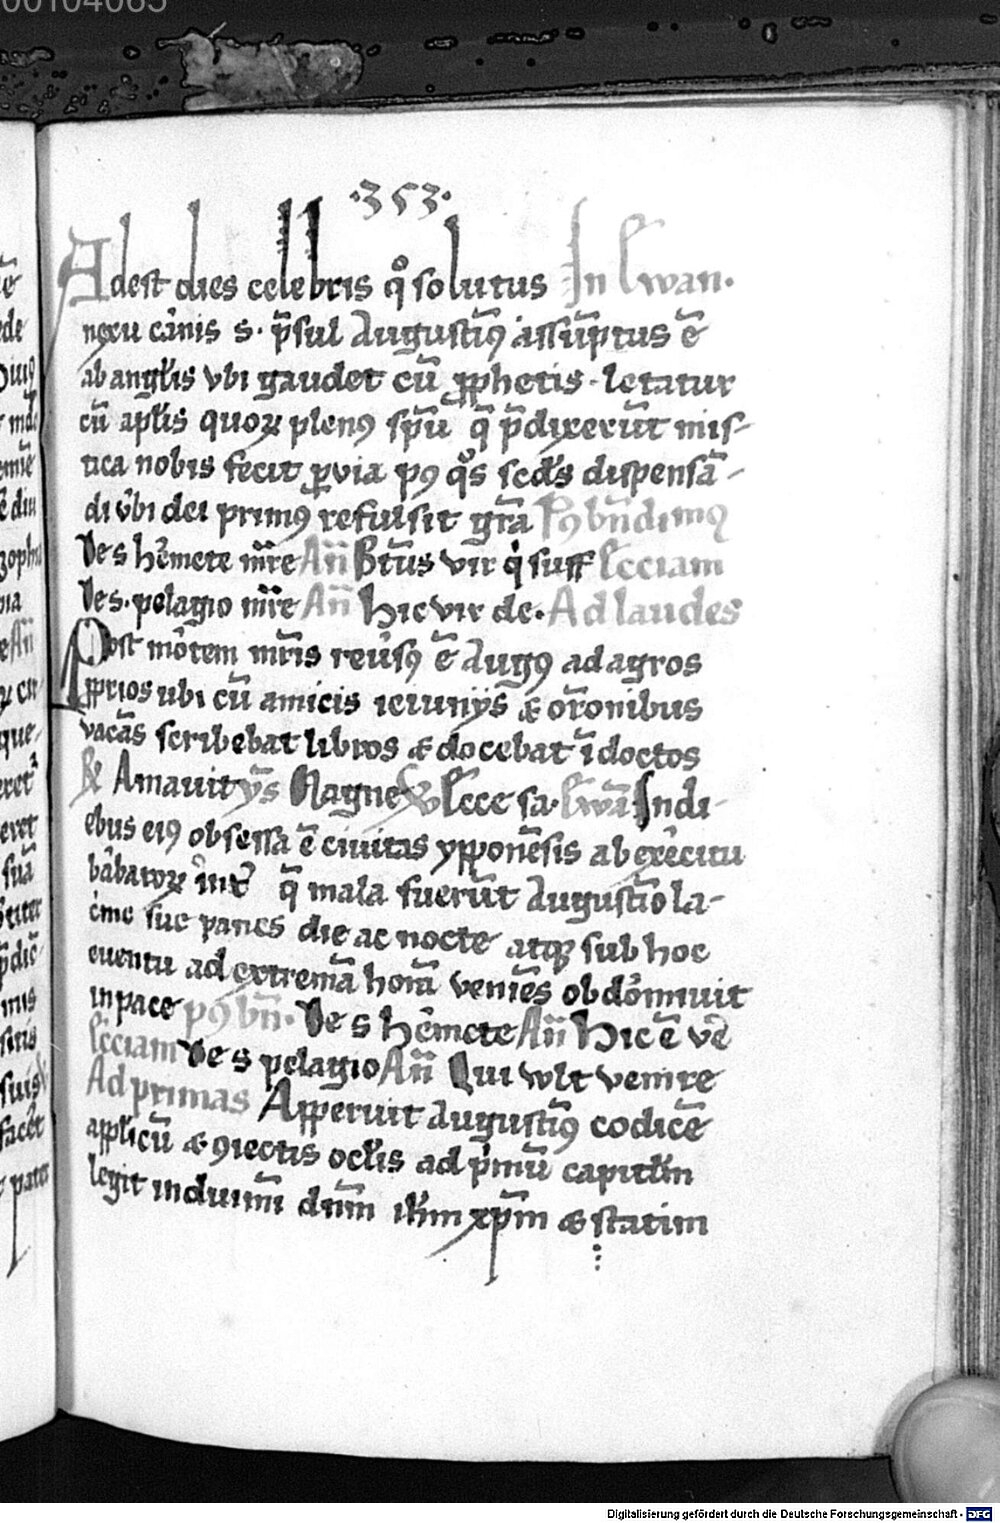 00104065
·353·
Adest dies celebris q° solutus In Ewan.
nexu cãnis s. p̃sul Augustĩꝰ assũptus ẽ
ab anglĩs vbi gaudet cũ ꝓphetis. letatur
cũ aplĩs quoꝝ plenꝰ spũ q̃ p̃dixerũt mis-
tica nobis fecit ꝑvia pꝰ q°s scd̃s dispensã-
di v̾bi dei primꝰ refulsit grã Pꝰ bñdimꝰ
De s hẽmete mr̃e Añ Btũs vir qͥ suff Ecciam
De s. pelagio mr̃e Añ Hic vir de. Ad laudes
Post mõtem mr̃is reũsꝰ ẽ Augꝰ ad agros
ꝓprios ubi cũ amicis ieiunijs & or̃onibus
vacãs scribebat libros & docebat ĩdoctos
R̃ Amavit ỹs Magne V̾ Ecce sa. Ewã In di-
ebus eiꝰ obsessa ẽ ciuitas ypponẽsis ab exẽcitu
bãbaroꝝ q̃ mala fuerũt Augustĩo la-
c̾me sue panes die ac nocte atqꝫ sub hoc
euentu ad extremã horã veniẽs obdõmiuit
in pace pꝰ bñ. De s hẽmete Añ Hic ẽ ve᷈
Ecciam De s pelagio Añ Qui wlt venire
Ad primas Apperuit Augustĩꝰ codicẽ
applĩcũ & ꝯiectis oclĩs ad pͥmũ capitlm̃
legit induimĩ dñm ihm̃ xp̃m & statim
Digitalisierung gefördert durch die Deutsche Forschungsgemeinschaft - DFG